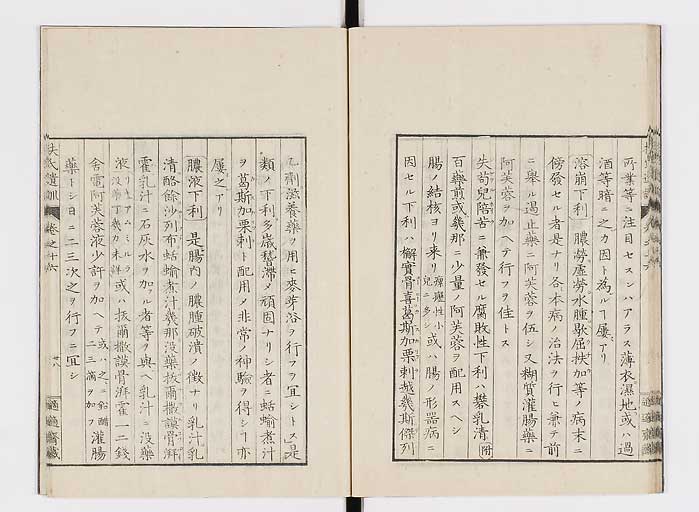 所業等ニ注目セスンハアラス薄衣濕地或ハ過
酒等暗ニ之カ因ト為ルヿ屢アリ
溶崩下利 膿勞虛勞水腫歇屈扶加等ノ病末ニ
傍發セル者是ナリ各本病ノ治法ヲ行ヒ兼テ前
ニ舉ル過止藥ニ阿芙蓉ヲ伍シ又糊質灌腸藥ニ
阿芙蓉ヲ加ヘテ行フヲ佳トス
失苟兒陪苦ニ兼發セル腐敗性下利ハ礬乳清附
百藥煎或幾那ニ少量ノ阿芙蓉ヲ配用スヘシ
腸ノ結核ヨリ來リ瘰癧性小兒ニ多シ或ハ腸ノ形器病ニ
因セル下利ハ檞實骨喜葛斯加栗刺越幾斯傑列
乙劑滋養藥ヲ用ヒ麥芽浴ヲ行フヲ宜シトス是
類ノ下利多歳稽滯ノ頑固ナリシ者ニ蛞蝓煮汁
ヲ葛斯加栗刺ト配用メ非常ノ神驗ヲ得シヿ亦
屢之アリ
膿液下利 是腸內ノ膿腫破潰ノ徵ナリ乳汁乳
清酪餘沙列布蛞蝓煮汁幾那沒藥拔爾撒謨骨湃
霍乳汁ニ石灰水ヲ加フル者等ヲ與ヘ乳汁ニ沒藥
液或ハ拔爾撒謨骨湃霍一二錢
舎電阿芙蓉液少許ヲ加ヘテ或ハ之ニ鉛醋二三滴ヲ加フ灌腸
藥トシ日ニ二三次之ヲ行フニ宜シ
扶氏遺訓 卷之十六
適適齋藏